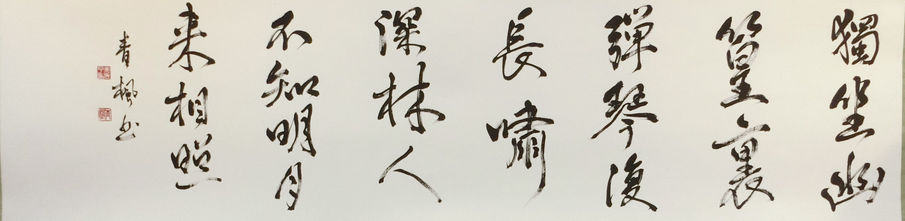 獨坐幽
篁裏
彈琴復
長嘯
深林人
不知明月
来相照
青楓书